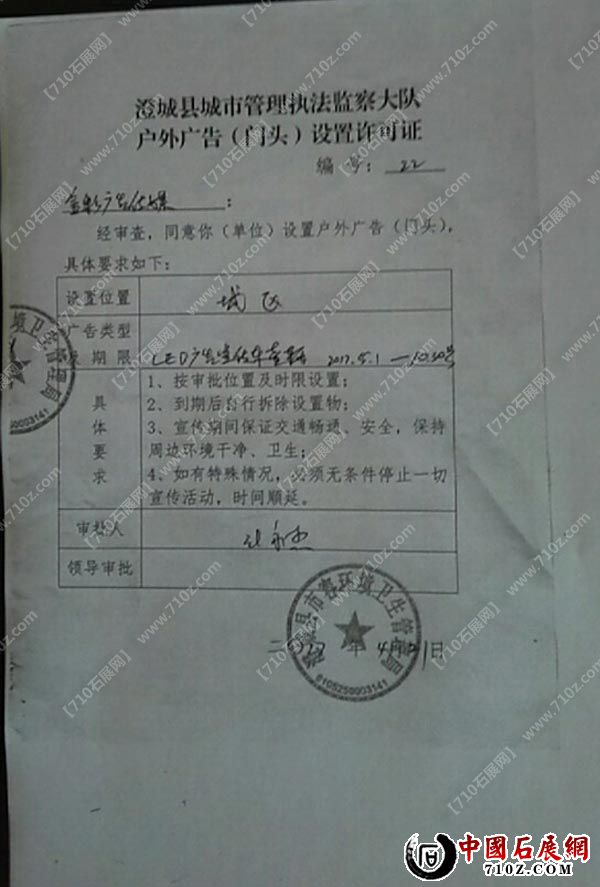 澄城县城市管理执法监察大队
户外广告（门头）设置许可证
编 号：22
金彩广告传媒：
经审查，同意你（单位）设置户外广告（门头），
具体要求如下：
设置位置 城区
广告类型
期 限 LED广告宣传车 2017.5.1—10.30号
具体要求
1、按审批位置及时限设置；
2、到期后自行拆除设置物；
3、宣传期间保证交通畅通、安全，保持
周边环境干净、卫生；
4、如有特殊情况，必须无条件停止一切
宣传活动，时间顺延。
审批人
领导审批
澄城县市容环境卫生管理局
6105250003141
二 年 4月 日
环境卫生管理局
50003141
【710石展网】www.710z.com
中國石展網
WWW.710Z.COM